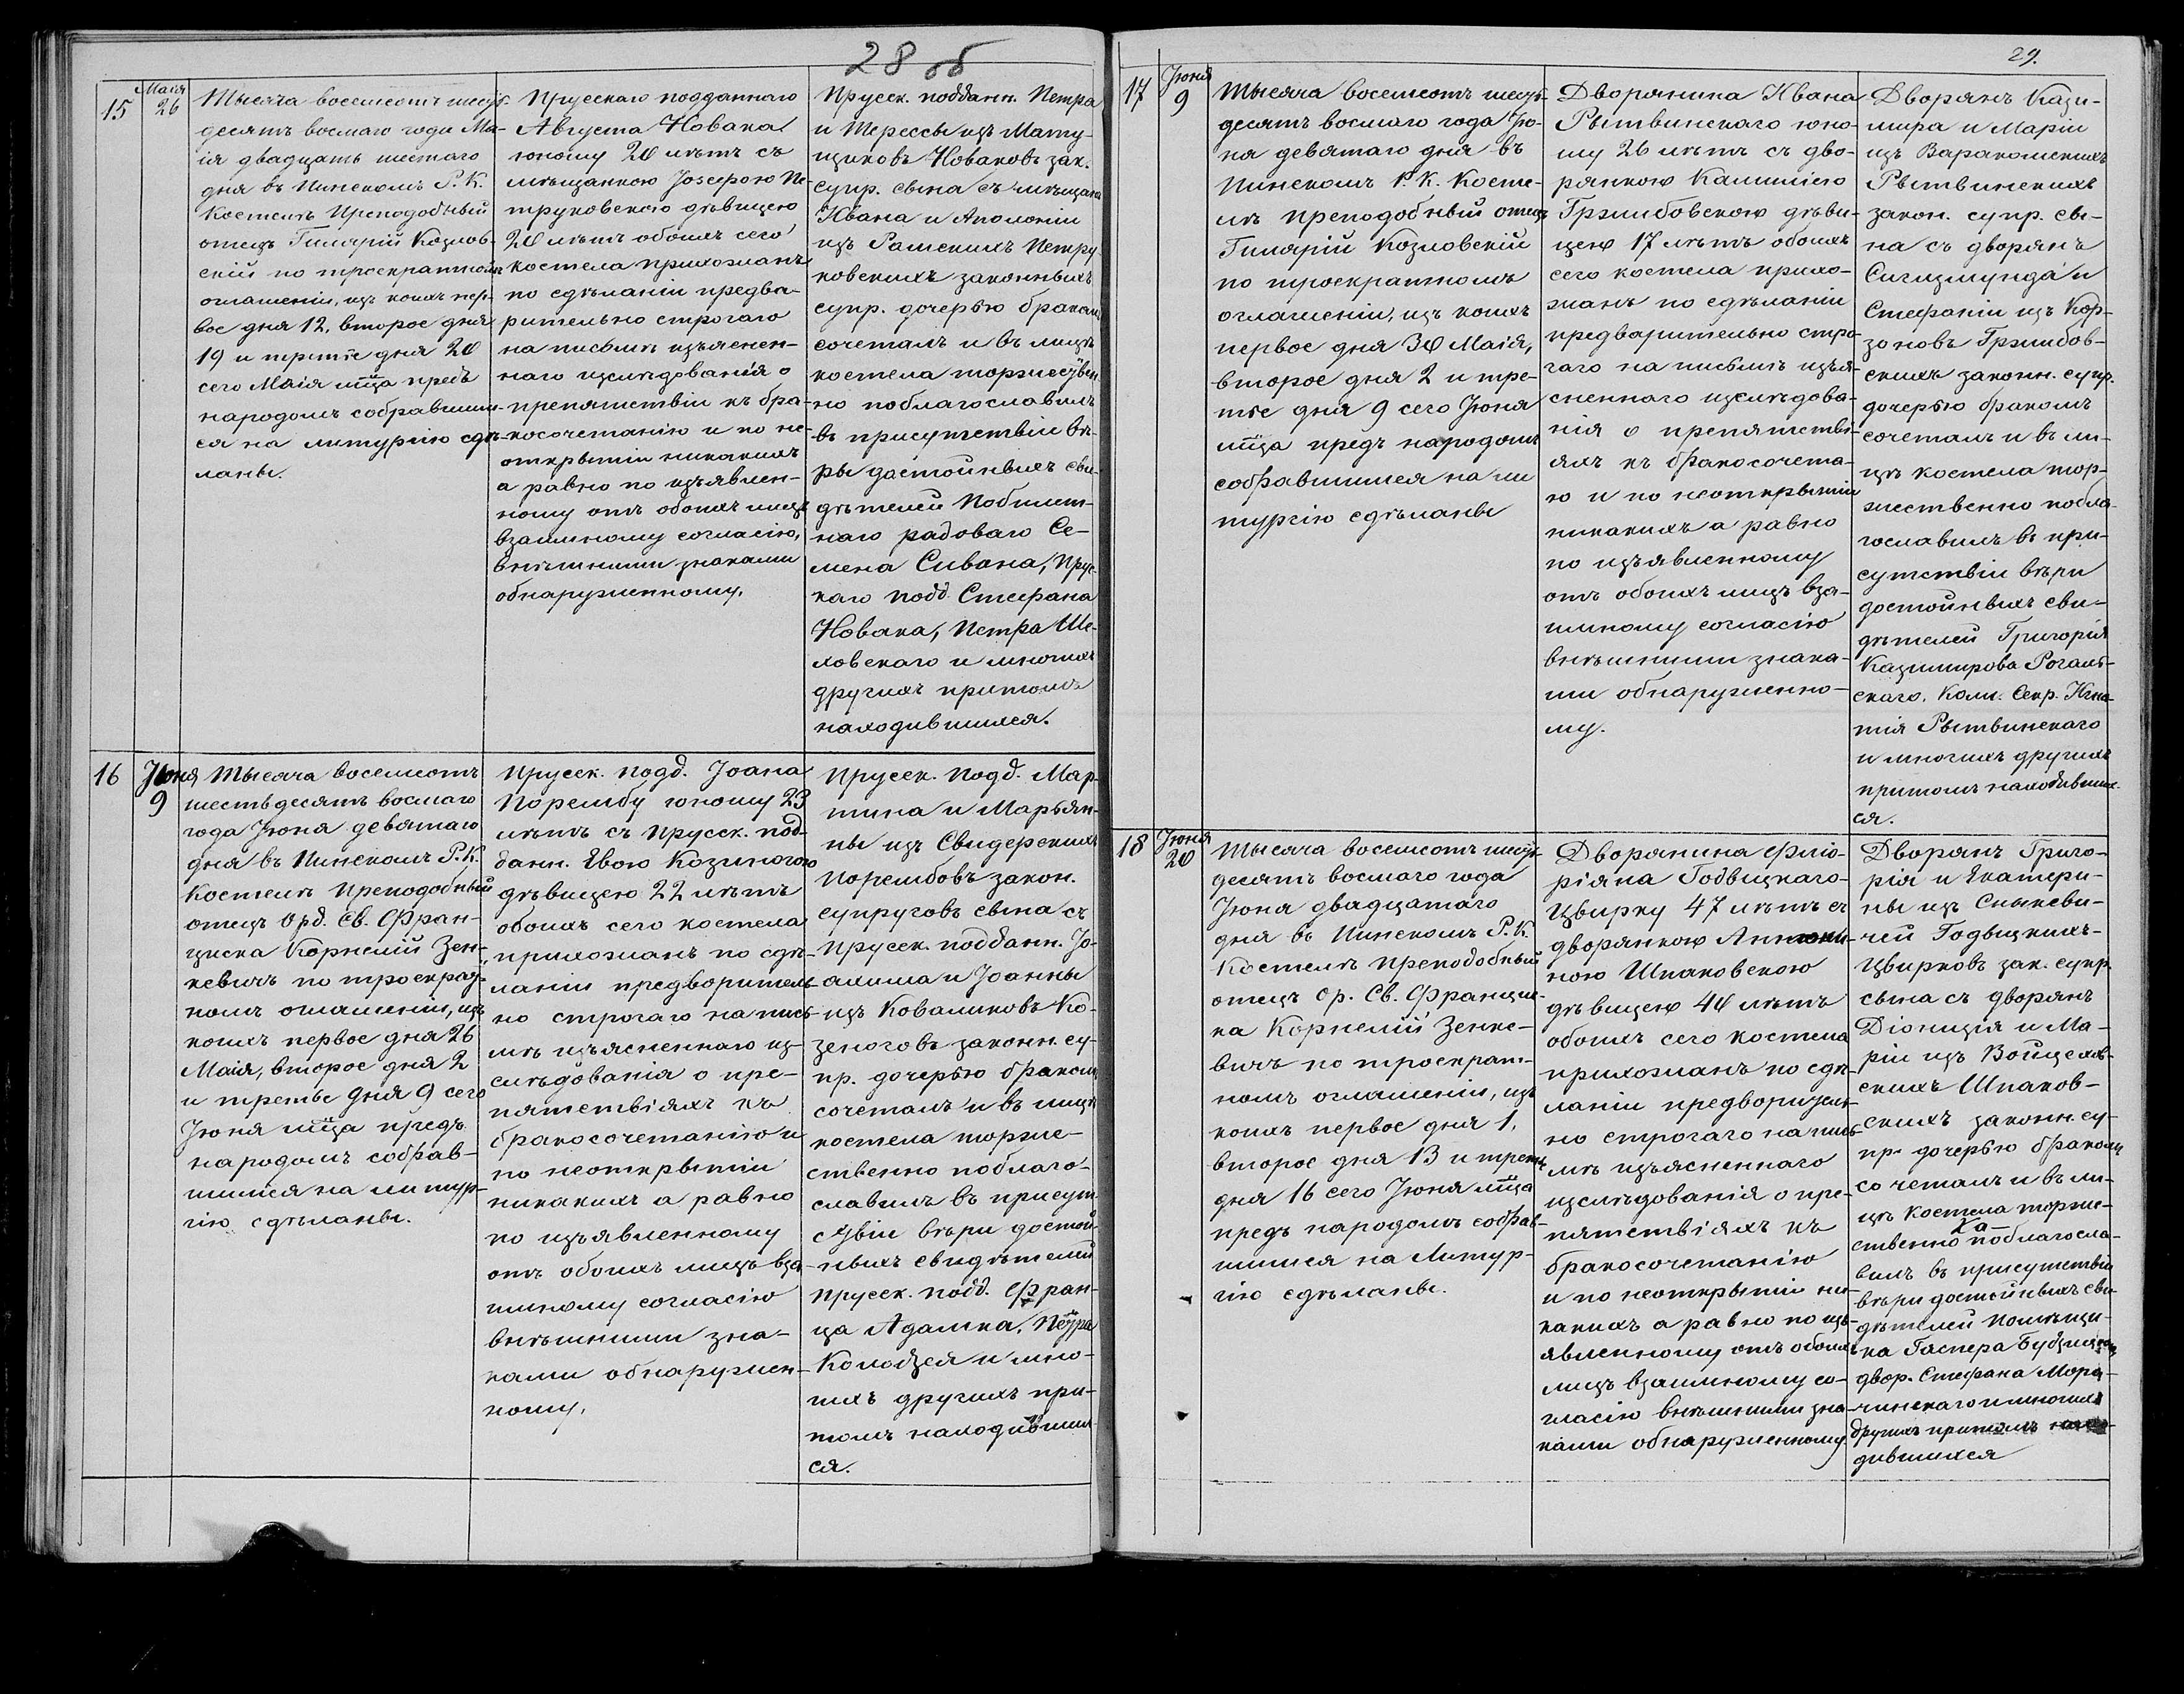 28 об
15
Маія
26
Тысяча восемсотъ шесть-
десятъ восмаго года Ма-
ія двадцать шестаго
дня въ Пинскомъ Р. К.
Костелѣ Преподобный
отецъ Гилярій Козлов-
скій по троекратномъ
оглашеніи, изъ коихъ пер-
вое дня 12, второе дня
19 и третіе дня 20
сего Маія мца предъ
народомъ собравшим-
ся на литургію сдѣ-
ланы.
Прусскаго подданнаго
Августа Новака
юному 20 лѣтъ съ
мѣщанкою Josефою Пе-
труковскою дѣвицею
20 лѣтъ обоихъ сего
костела прихожанъ
по сдѣланіи предва-
рительно строгаго
на письмѣ изъяснен-
наго изслѣдованія о
препятствіи къ бра-
косочетанію и по не-
открытіи никакихъ
а равно по изъявлен-
ному отъ обоихъ лицъ
взаимному согласію,
внѣшними знаками
обнаруженному,
Прусск. подданн. Петра
и Терессы изъ Мату-
щиковъ Новаковъ зак.
супр. сына съ мѣщанъ
Ивана и Аполоніи
изъ Рамскихъ Петру
ковскихъ законныхъ
супр. дочерью бракомъ
сочеталъ и въ лицѣ
костела торжествен
но поблагославилъ
въ присутствіи вѣ-
ры достойныхъ сви-
дѣтелей Побилет-
наго радоваго Се-
мена Сивана, Прус-
каго подд. Стефана
Новака, Петра Ше-
ховскаго и многихъ
другихъ притомъ
находившихся.
16
Іюня
9
Тысяча восемсотъ
шестьдесятъ восмаго
года Іюня девятаго
дня въ Пинскомъ Р. К.
Костелѣ Преподобный
отецъ Орд. Св. Фран-
циска Корнелій Зен-
кевичъ по троекрат-
номъ оглашеніи, изъ
коихъ первое дня 26
Маія, второе дня 2
и третье дня 9 сего
Іюня мца предъ
народомъ собрав-
шимся на литур-
гію сдѣланы.
Прусск. подд. Іоана
Порембу юному 23
лѣтъ съ Прусск. под-
данн. Евою Козиногою
дѣвицею 22 лѣтъ
обоихъ сего костела
прихожанъ по сдѣ-
ланіи предворитель-
но строгаго на пись
мѣ изъясненнаго из-
слѣдованія о пре-
пятствіяхъ къ
бракосочетанію и
по неоткрытіи
никакихъ а равно
по изъявленному
отъ обоихъ лицъ вза
имному согласію
внѣшними зна-
ками обнаружен-
ному,
Прусск. подд. Мар-
тина и Марьян-
ны изъ Свидерскихъ
Порембовъ закон.
супруговъ сына съ
Прусск. подданн. Jо-
ахима и Jоанны
изъ Коваликовъ Ко-
зеноговъ законн. су-
пр. дочерью бракомъ
сочеталъ и въ лицѣ
костела торже-
ственно поблаго-
славилъ въ присут
ствіи вѣри достой-
ныхъ свидѣтелей
Прусск. подд. Фран-
ца Адамка, Петра
Колодзея и мно-
гихъ другихъ при-
томъ находивших
ся.
29.
17
Іюня
9
Тысяча восемсотъ шесть-
десятъ восмаго года Ію-
ня девятаго дня въ
Пинскомъ Р. К. Косте-
лѣ преподобный отецъ
Гилярій Козловскій
по троекратномъ
оглашеніи, изъ коихъ
первое дня 30 Маія,
второе дня 2 и тре-
тіе дня 9 сего Іюня
мца предъ народомъ
собравшимся на ли
тургію сдѣланы
Дворянина Ивана
Рытвинскаго юно-
му 26 лѣтъ съ дво-
рянкою Камиліею
Гржимбовскою дѣви-
цею 17 лѣтъ обоихъ
сего костела прихо-
жанъ по сдѣланіи
предварительно стро
гаго на письмѣ изъя-
сненнаго изслѣдова-
нія о препятстві-
яхъ къ бракосочета-
ю и по неоткрытіи
никакихъ а равно
по изъявленному
отъ обоихъ лицъ вза-
имному согласію
внѣшними знака-
ми обнаруженно-
му.
Дворянъ Кази-
мира и Маріи
изъ Варакомскихъ
Рытвинскихъ
закон. супр. сы-
на съ дворянъ
Сигизмунда и
Стефаніи изъ Кор-
зоновъ Гржимбов-
скихъ законн. супр.
дочерью бракомъ
сочеталъ и въ ли-
цѣ костела тор-
жественно побла-
гославилъ въ при-
сутствіи вѣри
достойныхъ сви-
дѣтелей Григорія
Казимирова Рогаль-
скаго. Колл. Секр. Игна-
тія Рытвинскаго
и многихъ другихъ
притомъ находивших-
ся.
18
Іюня
20
Тысяча восемсотъ шесть-
десятъ восмаго года
Іюня двадцатаго
дня въ Пинскомъ Р. К.
Костелѣ преподобный
отецъ Ор. Св. Францис-
ка Корнелій Зенке-
вичъ по троекрат-
номъ оглашеніи, изъ
коихъ первое дня 1,
второе дня 13 и третье
дня 16 сего Іюня мца
предъ народомъ собрав-
шимся на Литур-
гію сдѣланы.
Дворянина Фло-
ріяна Годвицкаго-
Цвирку 47 лѣтъ съ
дворянкою Антони-
ною Шпаковскою
дѣвицею 40 лѣтъ
обоихъ сего костела
прихожанъ по сдѣ-
ланіи предворитель-
но строгаго на пись-
мѣ изъясненнаго
изслѣдованія о пре-
пятствіяхъ къ
бракосочетанію
и по неоткрытіи ни-
какихъ а равно по изъ-
явленному отъ обоихъ
лицъ взаимному со-
гласію внѣшними зна-
ками обнаруженному
Дворянъ Григо-
рія и Екатери-
ны изъ Сынкеви-
чей Годвицкихъ-
Цвирковъ зак. супр.
сына съ дворянъ
Діонизія и Ма-
ріи изъ Войцехов-
скихъ Шпаков-
скихъ законн. су-
пр. дочерью бракомъ
сочеталъ и въ ли-
цѣ костела торже-
ственно поблагосла-
вилъ въ присутствіи
вѣри достойныхъ сви-
дѣтелей помѣщи-
ка Гаспера
двор. Стефана Мора-
чинскаго и многихъ
другихъ притомъ нахо-
дившихся